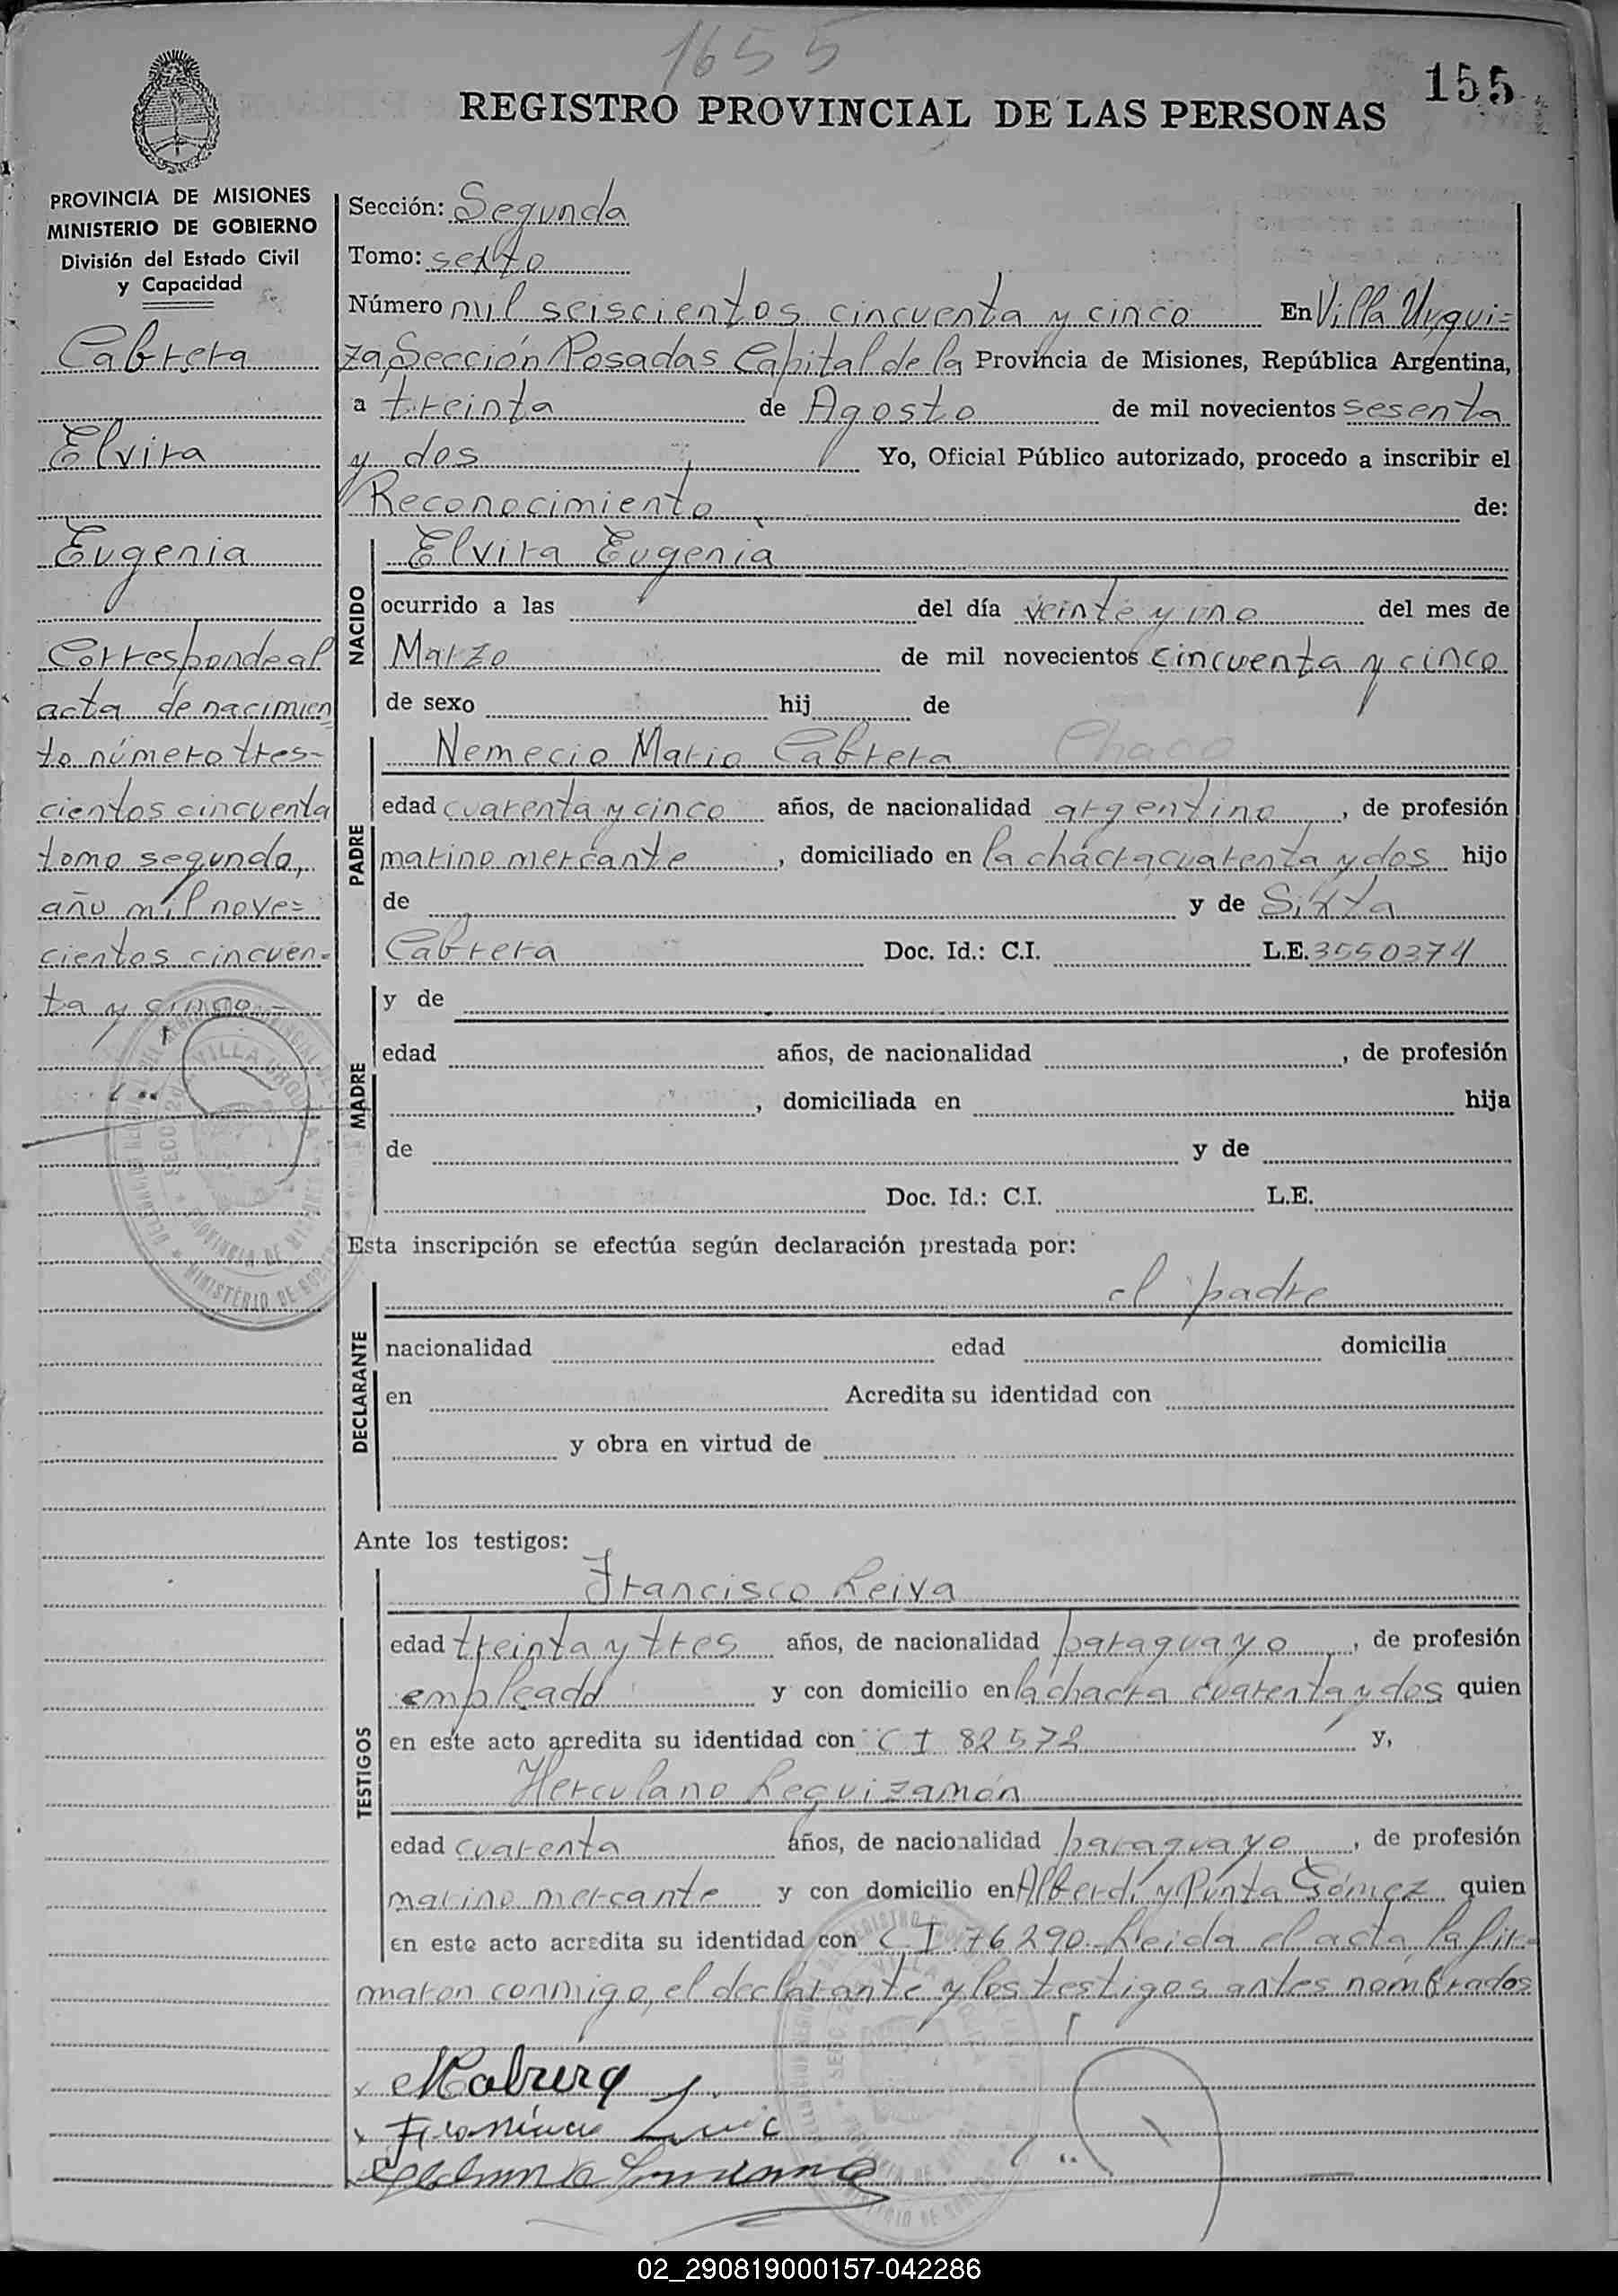 1655
155
REGISTRO PROVINCIAL DE LAS PERSONAS
PROVINCIA DE MISIONES
MINISTERIO DE GOBIERNO
División del Estado Civil
y Capacidad
Cabrera
Elvira
Eugenia
Corresponde al
acta de nacimien
to número tres-
cientos cincuenta
tomo segundo,
año mil nove=
cientos cincuen-
ta y cinco-
Sección: Segunda
Tomo: sexto
Número mil seiscientos cincuenta y cinco En Villa Urqui=
za, Sección Posadas Capital de la Provincia de Misiones, República Argentina,
a treinta de Agosto de mil novecientos sesenta
y dos Yo, Oficial Público autorizado, procedo a inscribir el
Reconocimiento de:
NACIDO
Elvira Eugenia
ocurrido a las del día veinte y uno del mes de
Marzo de mil novecientos cincuenta y cinco
de sexo hij de
PADRE
Nemecio Mario Cabrera Chaco
edad cuarenta y cinco años, de nacionalidad argentino, de profesión
marino mercante, domiciliado en la chacra cuarenta y dos hijo
de y de Sixta
Cabrera Doc. Id.: C.I. L.E. 3550374
MADRE
y de
edad años, de nacionalidad , de profesión
, domiciliada en hija
de y de
Doc. Id.: C.I. L.E.
Esta inscripción se efectúa según declaración prestada por:
DECLARANTE
el padre
nacionalidad edad domicilia
en Acredita su identidad con
y obra en virtud de
Ante los testigos:
TESTIGOS
Francisco Leiva
edad treinta y tres años, de nacionalidad paraguayo, de profesión
empleado y con domicilio en la chacra cuarenta y dos quien
en este acto acredita su identidad con C I 82572 y,
Herculano Leguizamón
edad cuarenta años, de nacionalidad paraguayo, de profesión
marino mercante y con domicilio en Alberdi y Punta Gómez quien
en este acto acredita su identidad con C I 76290. Leida el acta, la fir=
maron conmigo, el declarante y los testigos antes nombrados
02_290819000157-042286